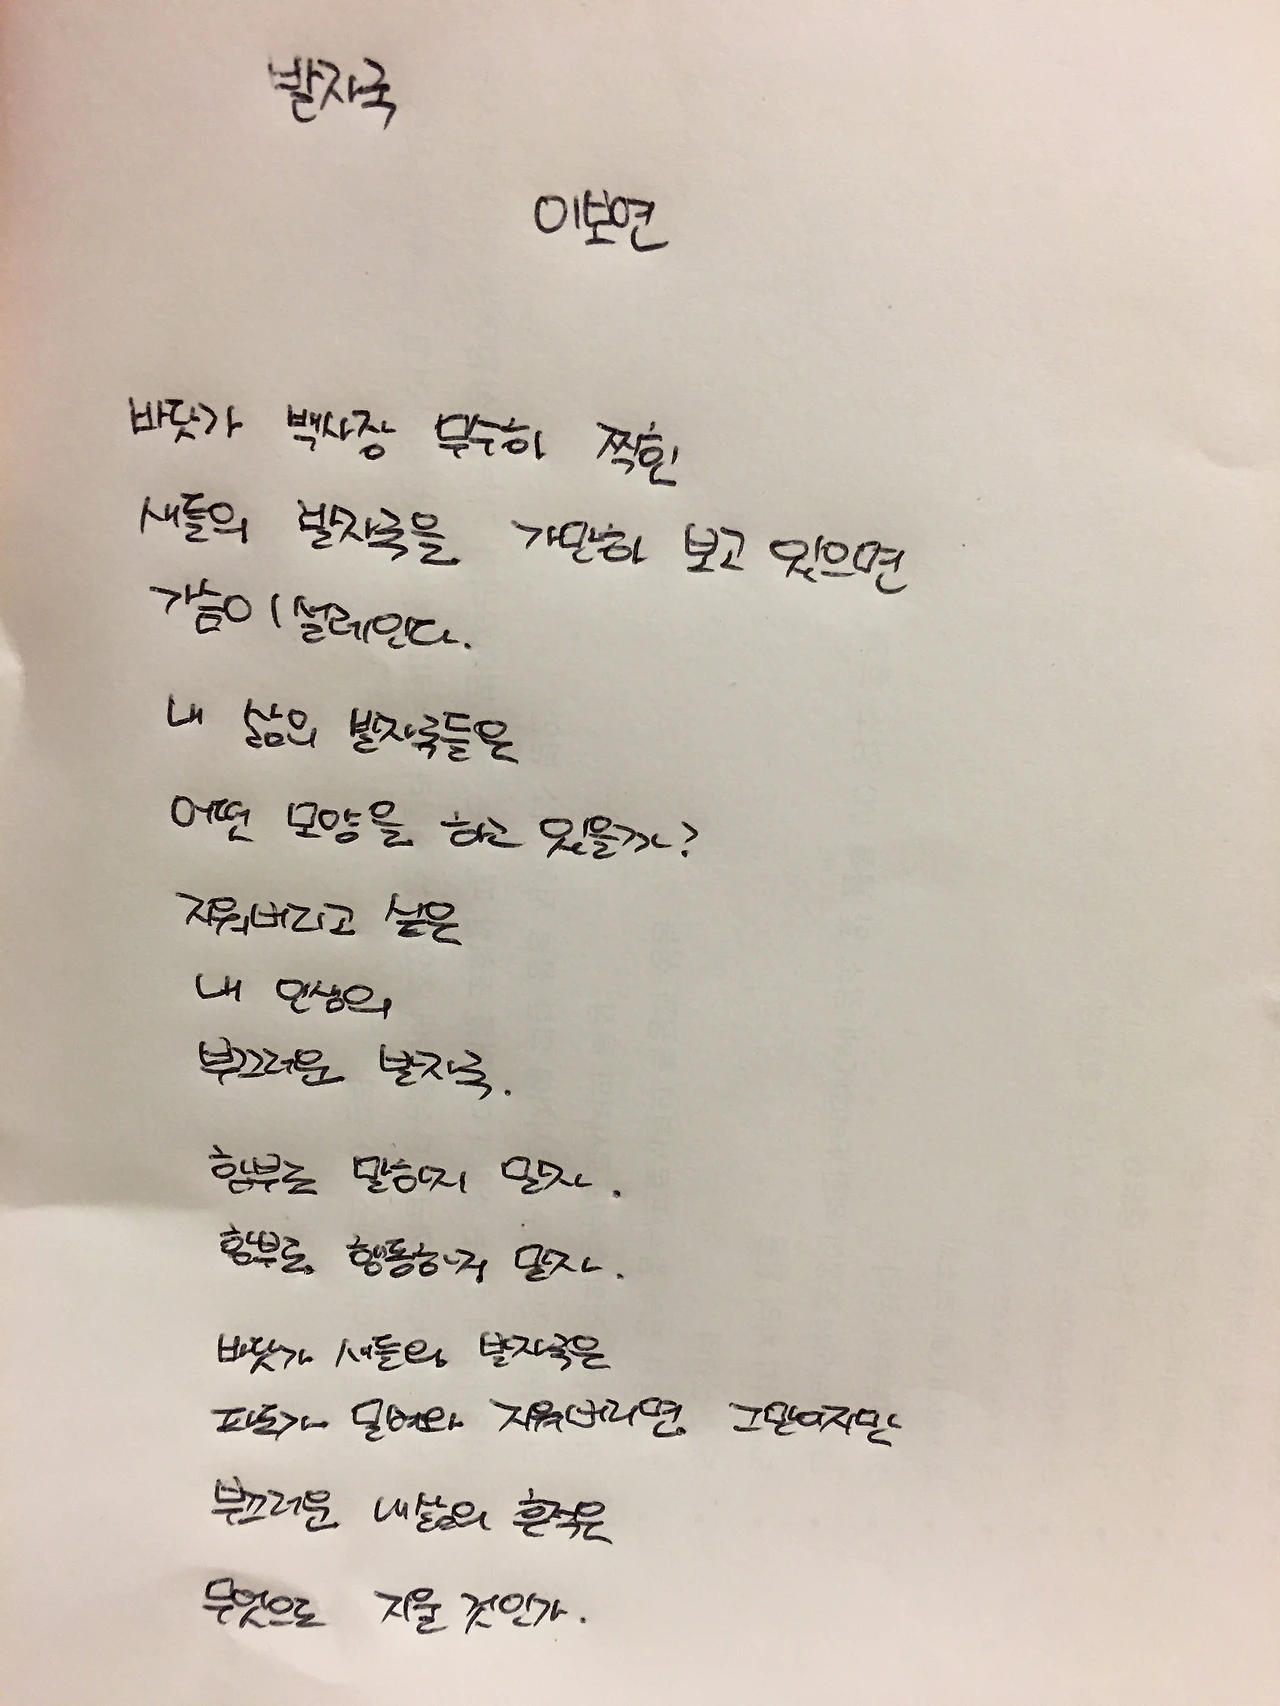 발자국
이보연
바닷가 백사장 무수히 찍힌
새들의 발자국을 가만히 보고 있으면
가슴이 설레인다.
내 삶의 발자국들은
어떤 모양을 하고 있을까?
지워버리고 싶은
내 인생의
부끄러운 발자국.
함부로 말하지 말자.
함부로 행동하지 말자.
바닷가 새들의 발자국은
파도가 밀려와 지워버리면 그만이지만
부끄러운 내삶의 흔적은
무엇으로 지울 것인가.